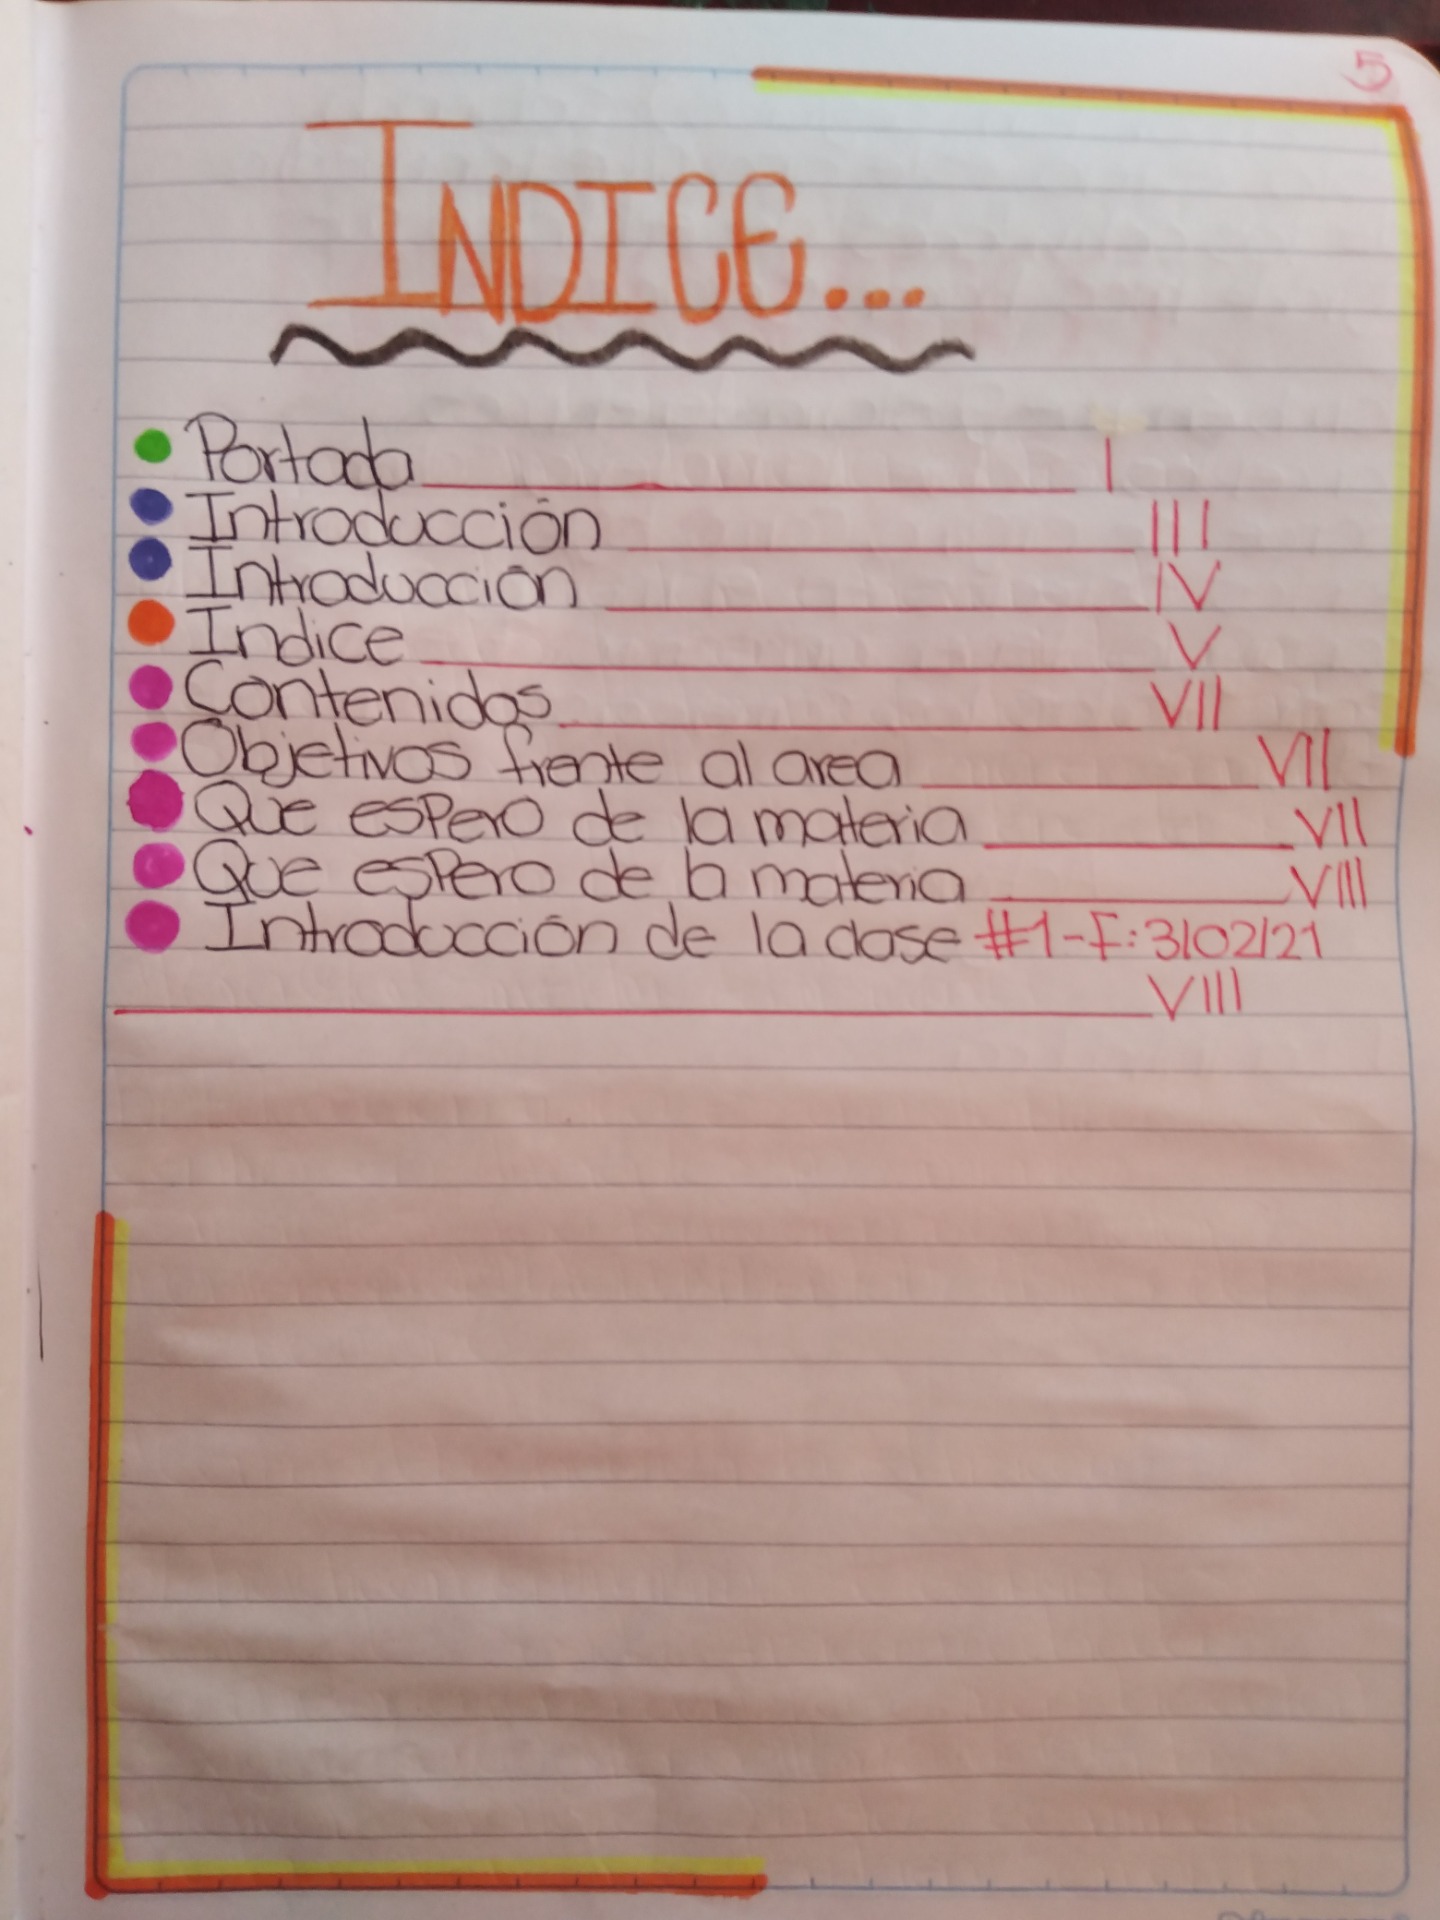 5
INDICE...
Portada I
Introducción III
Introducción IV
Indice V
Contenidos VII
Objetivos frente al area VII
Que espero de la materia VII
Que espero de la materia VIII
Introducción de la clase #1-F: 3/02/21
VIII